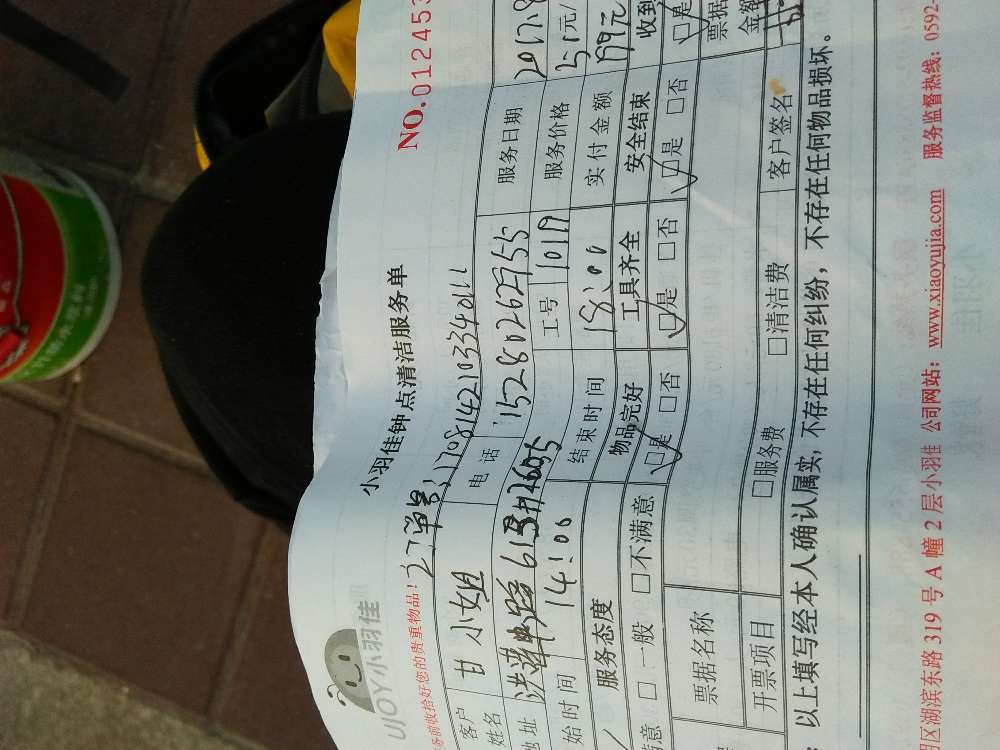 UJOY小羽佳
小羽佳钟点清洁服务单
NO.012453
收拾好您的贵重物品!
单号:1708142103340211
客户姓名 甘小姐 电话 15280262755 服务日期 2017.8
地址 工号 1019 服务价格 元/
始时间 14:00 结束时间 18:00 实付金额 元
服务态度 物品完好 工具齐全 安全结束 收到
满意 □一般 □不满意 ☑是 □否 ☑是 □否 ☑是 □否 ☑是
票据名称 票据金额
开票项目 □服务费 □清洁费 客户签名
:以上填写经本人确认属实,不存在任何纠纷,不存在任何物品损坏。
区湖滨东路 319 号 A 幢 2 层小羽佳 公司网站: www.xiaoyujia.com 服务监督热线: 0592-